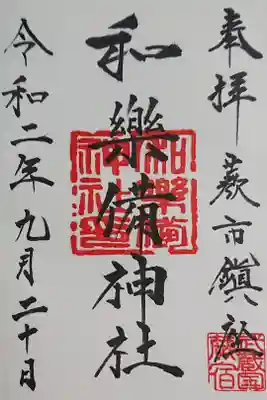 奉拝 蕨市鎮座
和樂備神社
令和二年九月二十日